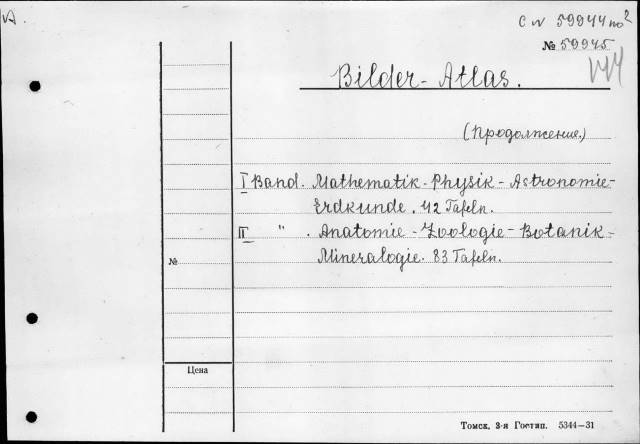 А.
№ 59945
Bilder-Atlas.
(Продолжение.)
I Band. Mathematik-Physik-Astronomie-
Erdkunde. 42 Tafeln.
II " . Anatomie-Zoologie-Botanik-
Mineralogie. 83 Tafeln.
№
Цена
Томск, 3-я Гостип. 5344—31